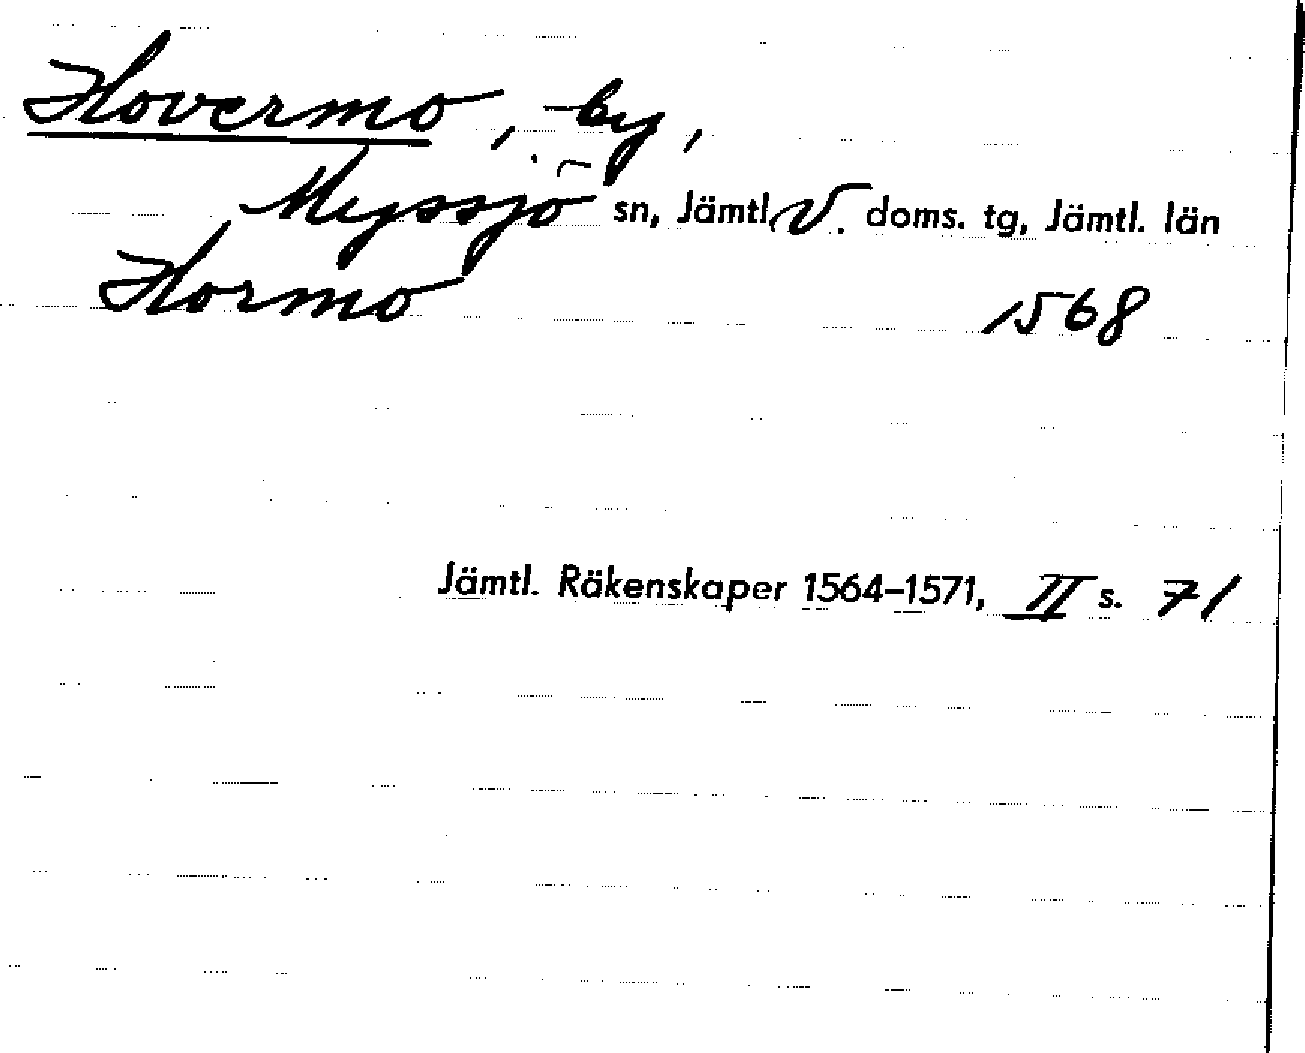 Hovermo, by,
Myssjö sn, Jämtl. V. doms. tg, Jämtl. län
Hormo 1568
Jämtl. Räkenskaper 1564-1571, II s. 71